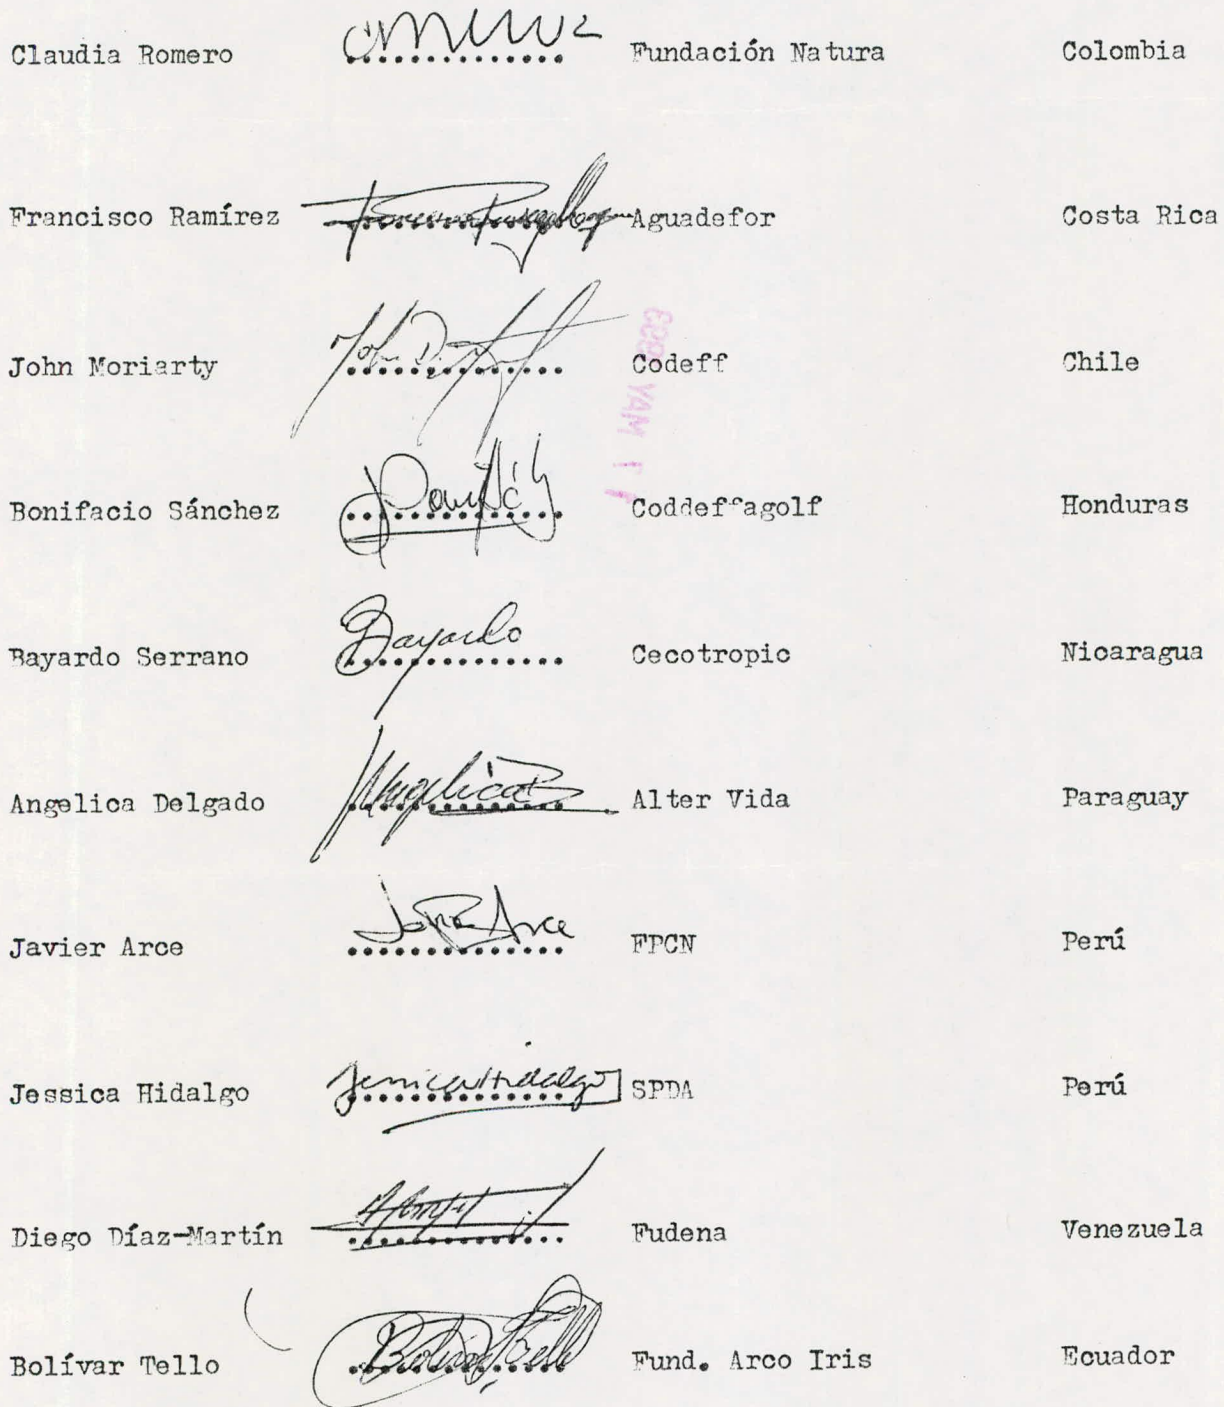 Claudia Romero .............. Fundación Natura Colombia
Francisco Ramírez .............. Aguadefor Costa Rica
John Moriarty .............. Codeff Chile
MAY 1993
Bonifacio Sánchez .............. Coddeffagolf Honduras
Bayardo Serrano Bayardo .............. Cecotropic Nicaragua
Angelica Delgado Angelica .............. Alter Vida Paraguay
Javier Arce Javier Arce .............. FPCN Perú
Jessica Hidalgo Jessica Hidalgo .............. SPDA Perú
Diego Díaz-Martín .............. Fudena Venezuela
Bolívar Tello Bolívar Tello .............. Fund. Arco Iris Ecuador